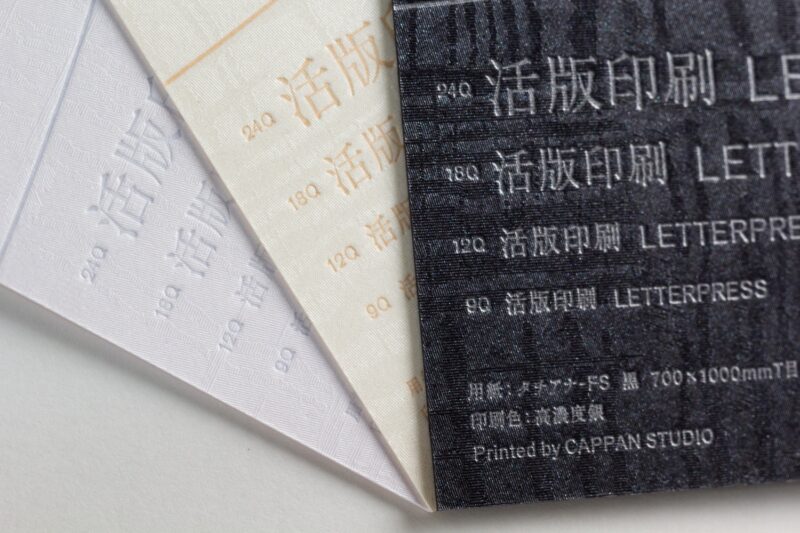 24Q 活版
18Q 活版
12Q 活版
9Q 活
24Q 活版
18Q 活版
12Q 活版
9Q 活
24Q 活版印刷 LE
18Q 活版印刷 LETT
12Q 活版印刷 LETTERPRE
9Q 活版印刷 LETTERPRESS
用紙：タチアナ-FS 黒 700×1000mmT目
印刷色：高濃度銀
Printed by CAPPAN STUDIO